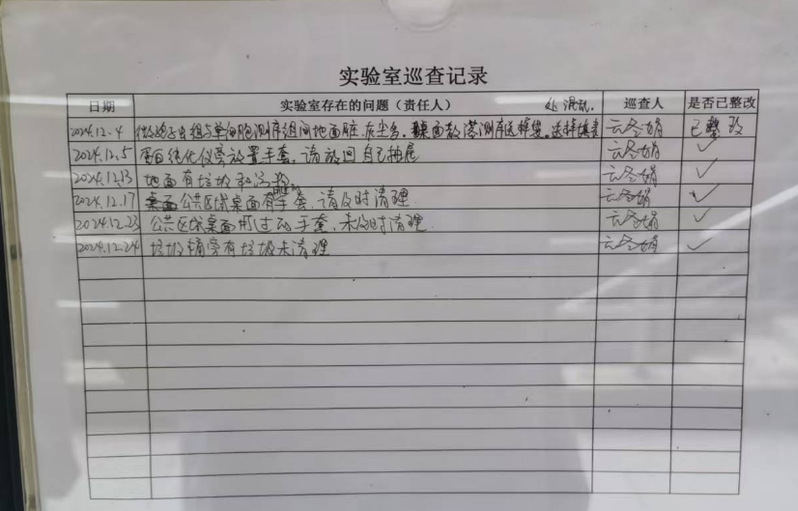 实验室巡查记录
日期 实验室存在的问题（责任人） 处混乱. 巡查人 是否已整改
2024.12.4 组与单细胞测序组间地面脏灰尘多. 桌面 测序送样 送样 云冬娟 已整改
2024.12.5 蛋白纯化仪旁放置手套、请放回自己抽屉 云冬娟 ✓
2024.12.13 地面有垃圾和 云冬娟 ✓
2024.12.17 公共区域桌面有手套、请及时清理 云冬娟 ✓
2024.12.23 公共区域桌面用过的手套、未及时清理. 云冬娟 ✓
2024.12.24 垃圾桶旁有垃圾未清理 云冬娟 ✓